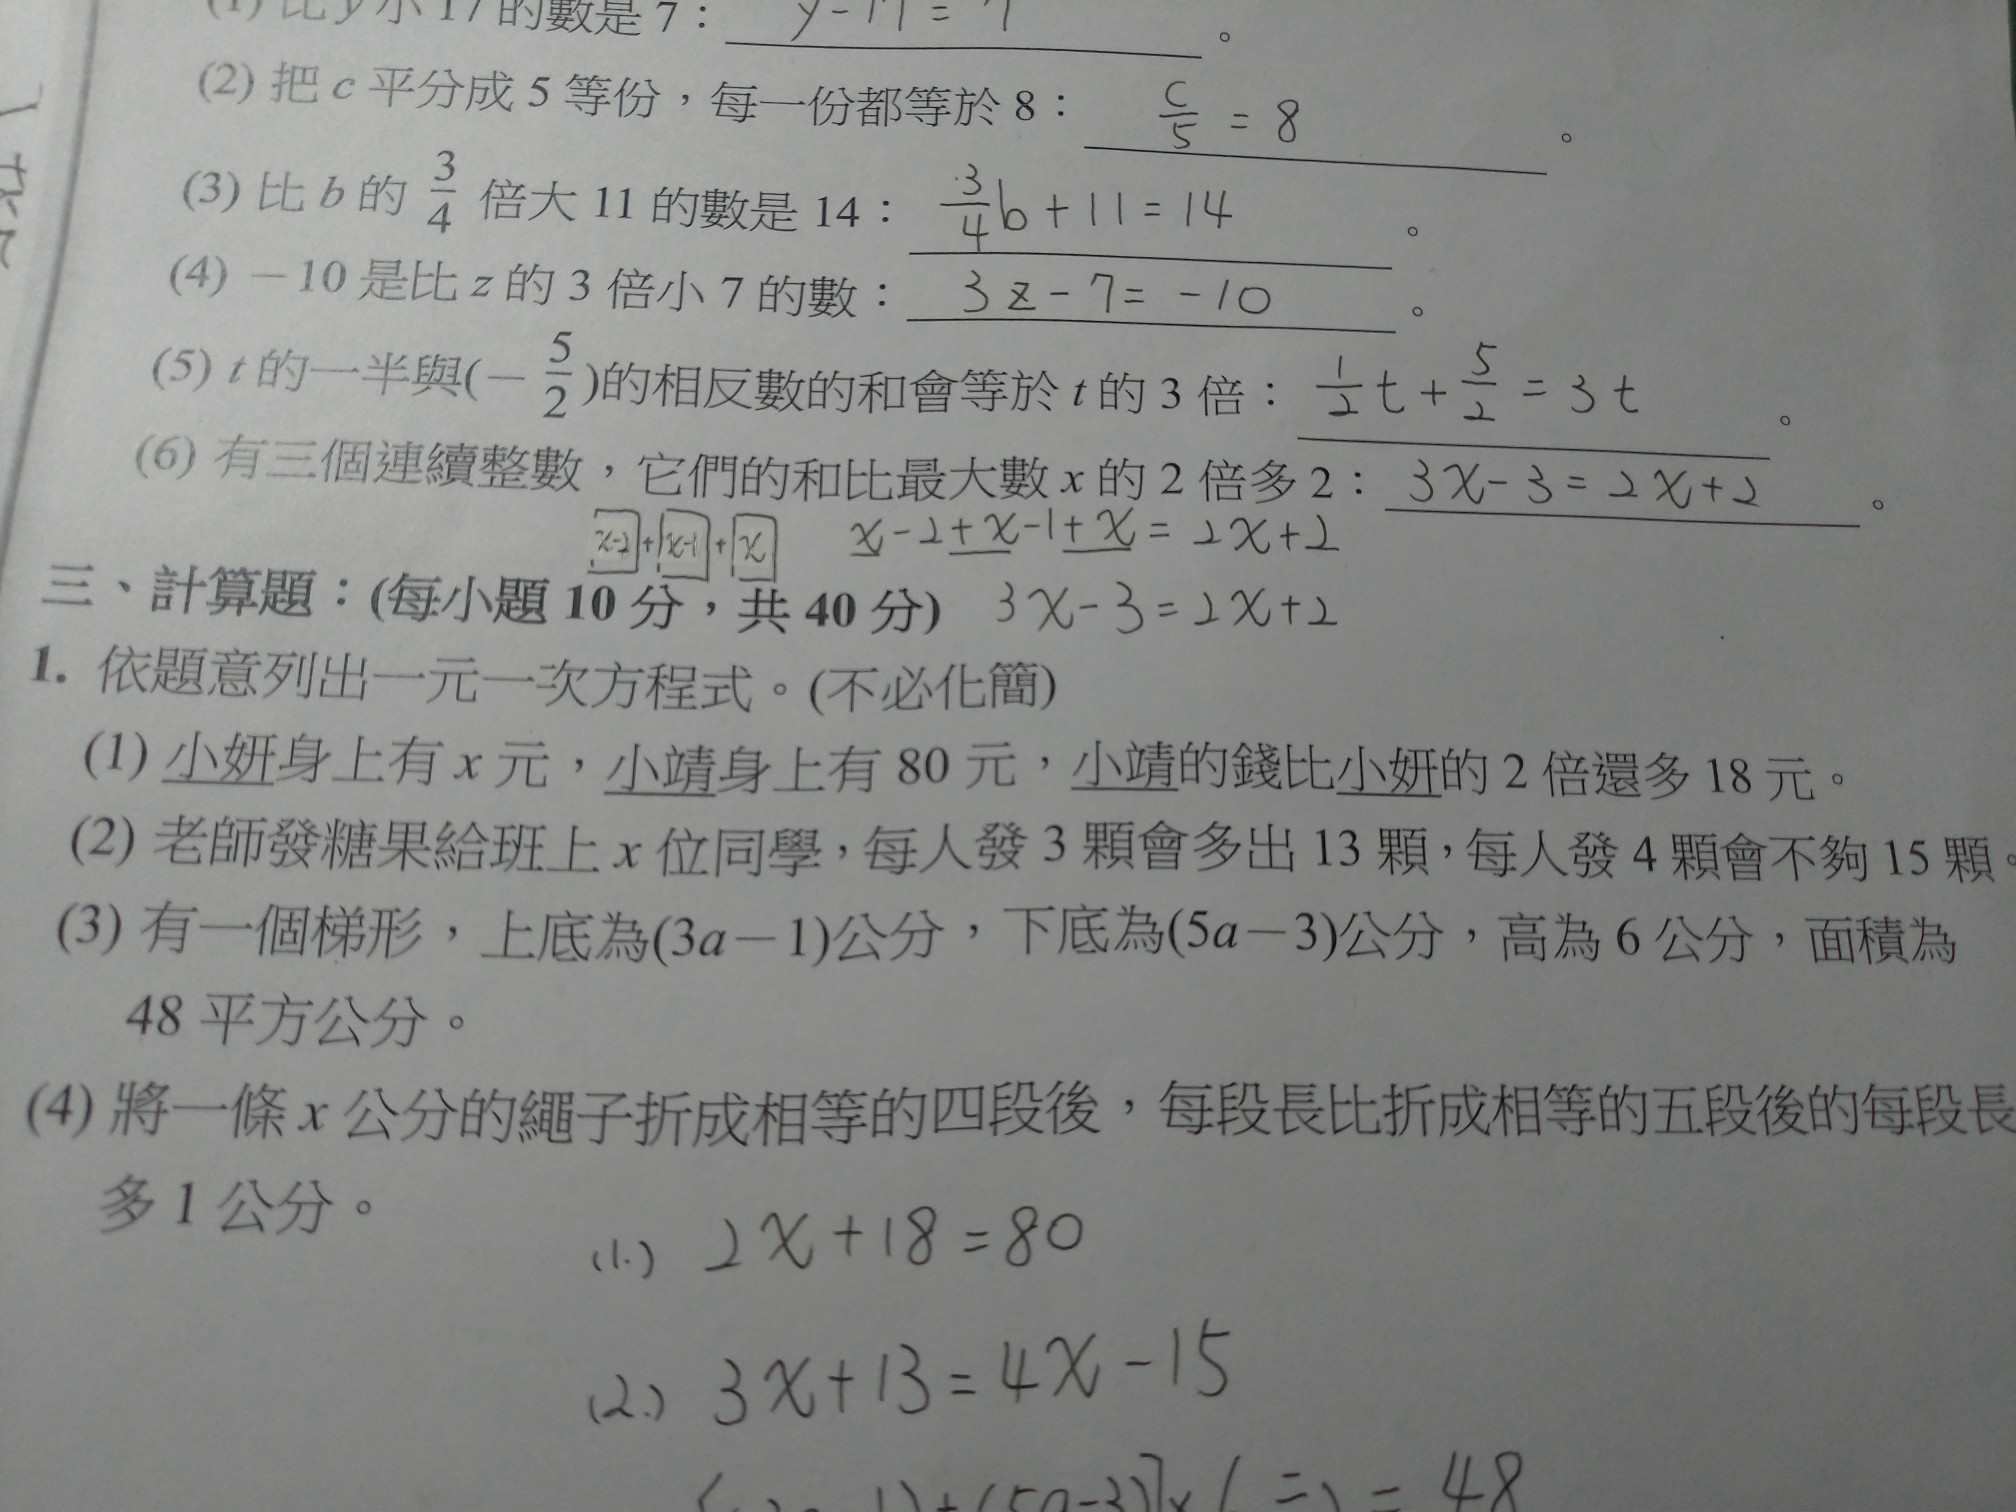 (1) 比 y 小 17 的數是 7： y-17=7 。
(2) 把 c 平分成 5 等份，每一份都等於 8： c/5 = 8 。
(3) 比 b 的 3/4 倍大 11 的數是 14： 3/4 b+11=14 。
(4) －10 是比 z 的 3 倍小 7 的數： 3z-7=-10 。
(5) t 的一半與(－5/2)的相反數的和會等於 t 的 3 倍： 1/2 t+5/2=3t 。
(6) 有三個連續整數，它們的和比最大數 x 的 2 倍多 2： 3x-3=2x+2 。
x-2+x-1+x x-2+x-1+x=2x+2
三、計算題：(每小題 10 分，共 40 分) 3x-3=2x+2
1. 依題意列出一元一次方程式。(不必化簡)
(1) 小妍身上有 x 元，小靖身上有 80 元，小靖的錢比小妍的 2 倍還多 18 元。
(2) 老師發糖果給班上 x 位同學，每人發 3 顆會多出 13 顆，每人發 4 顆會不夠 15 顆。
(3) 有一個梯形，上底為(3a－1)公分，下底為(5a－3)公分，高為 6 公分，面積為
48 平方公分。
(4) 將一條 x 公分的繩子折成相等的四段後，每段長比折成相等的五段後的每段長
多 1 公分。
(1.) 2x+18=80
(2.) 3x+13=4x-15
1)+(5a-3)]x = 48